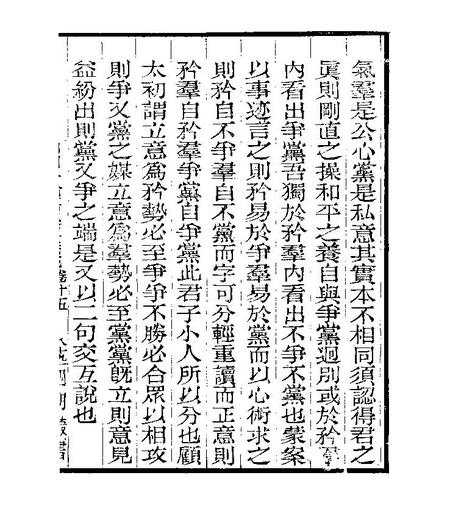 氣羣是公心黨是私意其實本不相同須認得君之
眞則剛直之操和平之養自與爭黨迥別或於矜羣
內看出爭黨吾獨於矜羣內看出不爭不黨也蒙案
以事迹言之則矜易於爭羣易於黨而以心術求之
則矜自不爭羣自不黨而字可分輕重讀而正意則
矜羣自矜羣爭黨自爭黨此君子小人所以分也顧
太初謂立意爲矜勢必至爭爭不勝必合眾以相攻
則爭又黨之媒立意爲羣勢必至黨黨旣立則意見
益紛出則黨又爭之端是又以二句交互說也